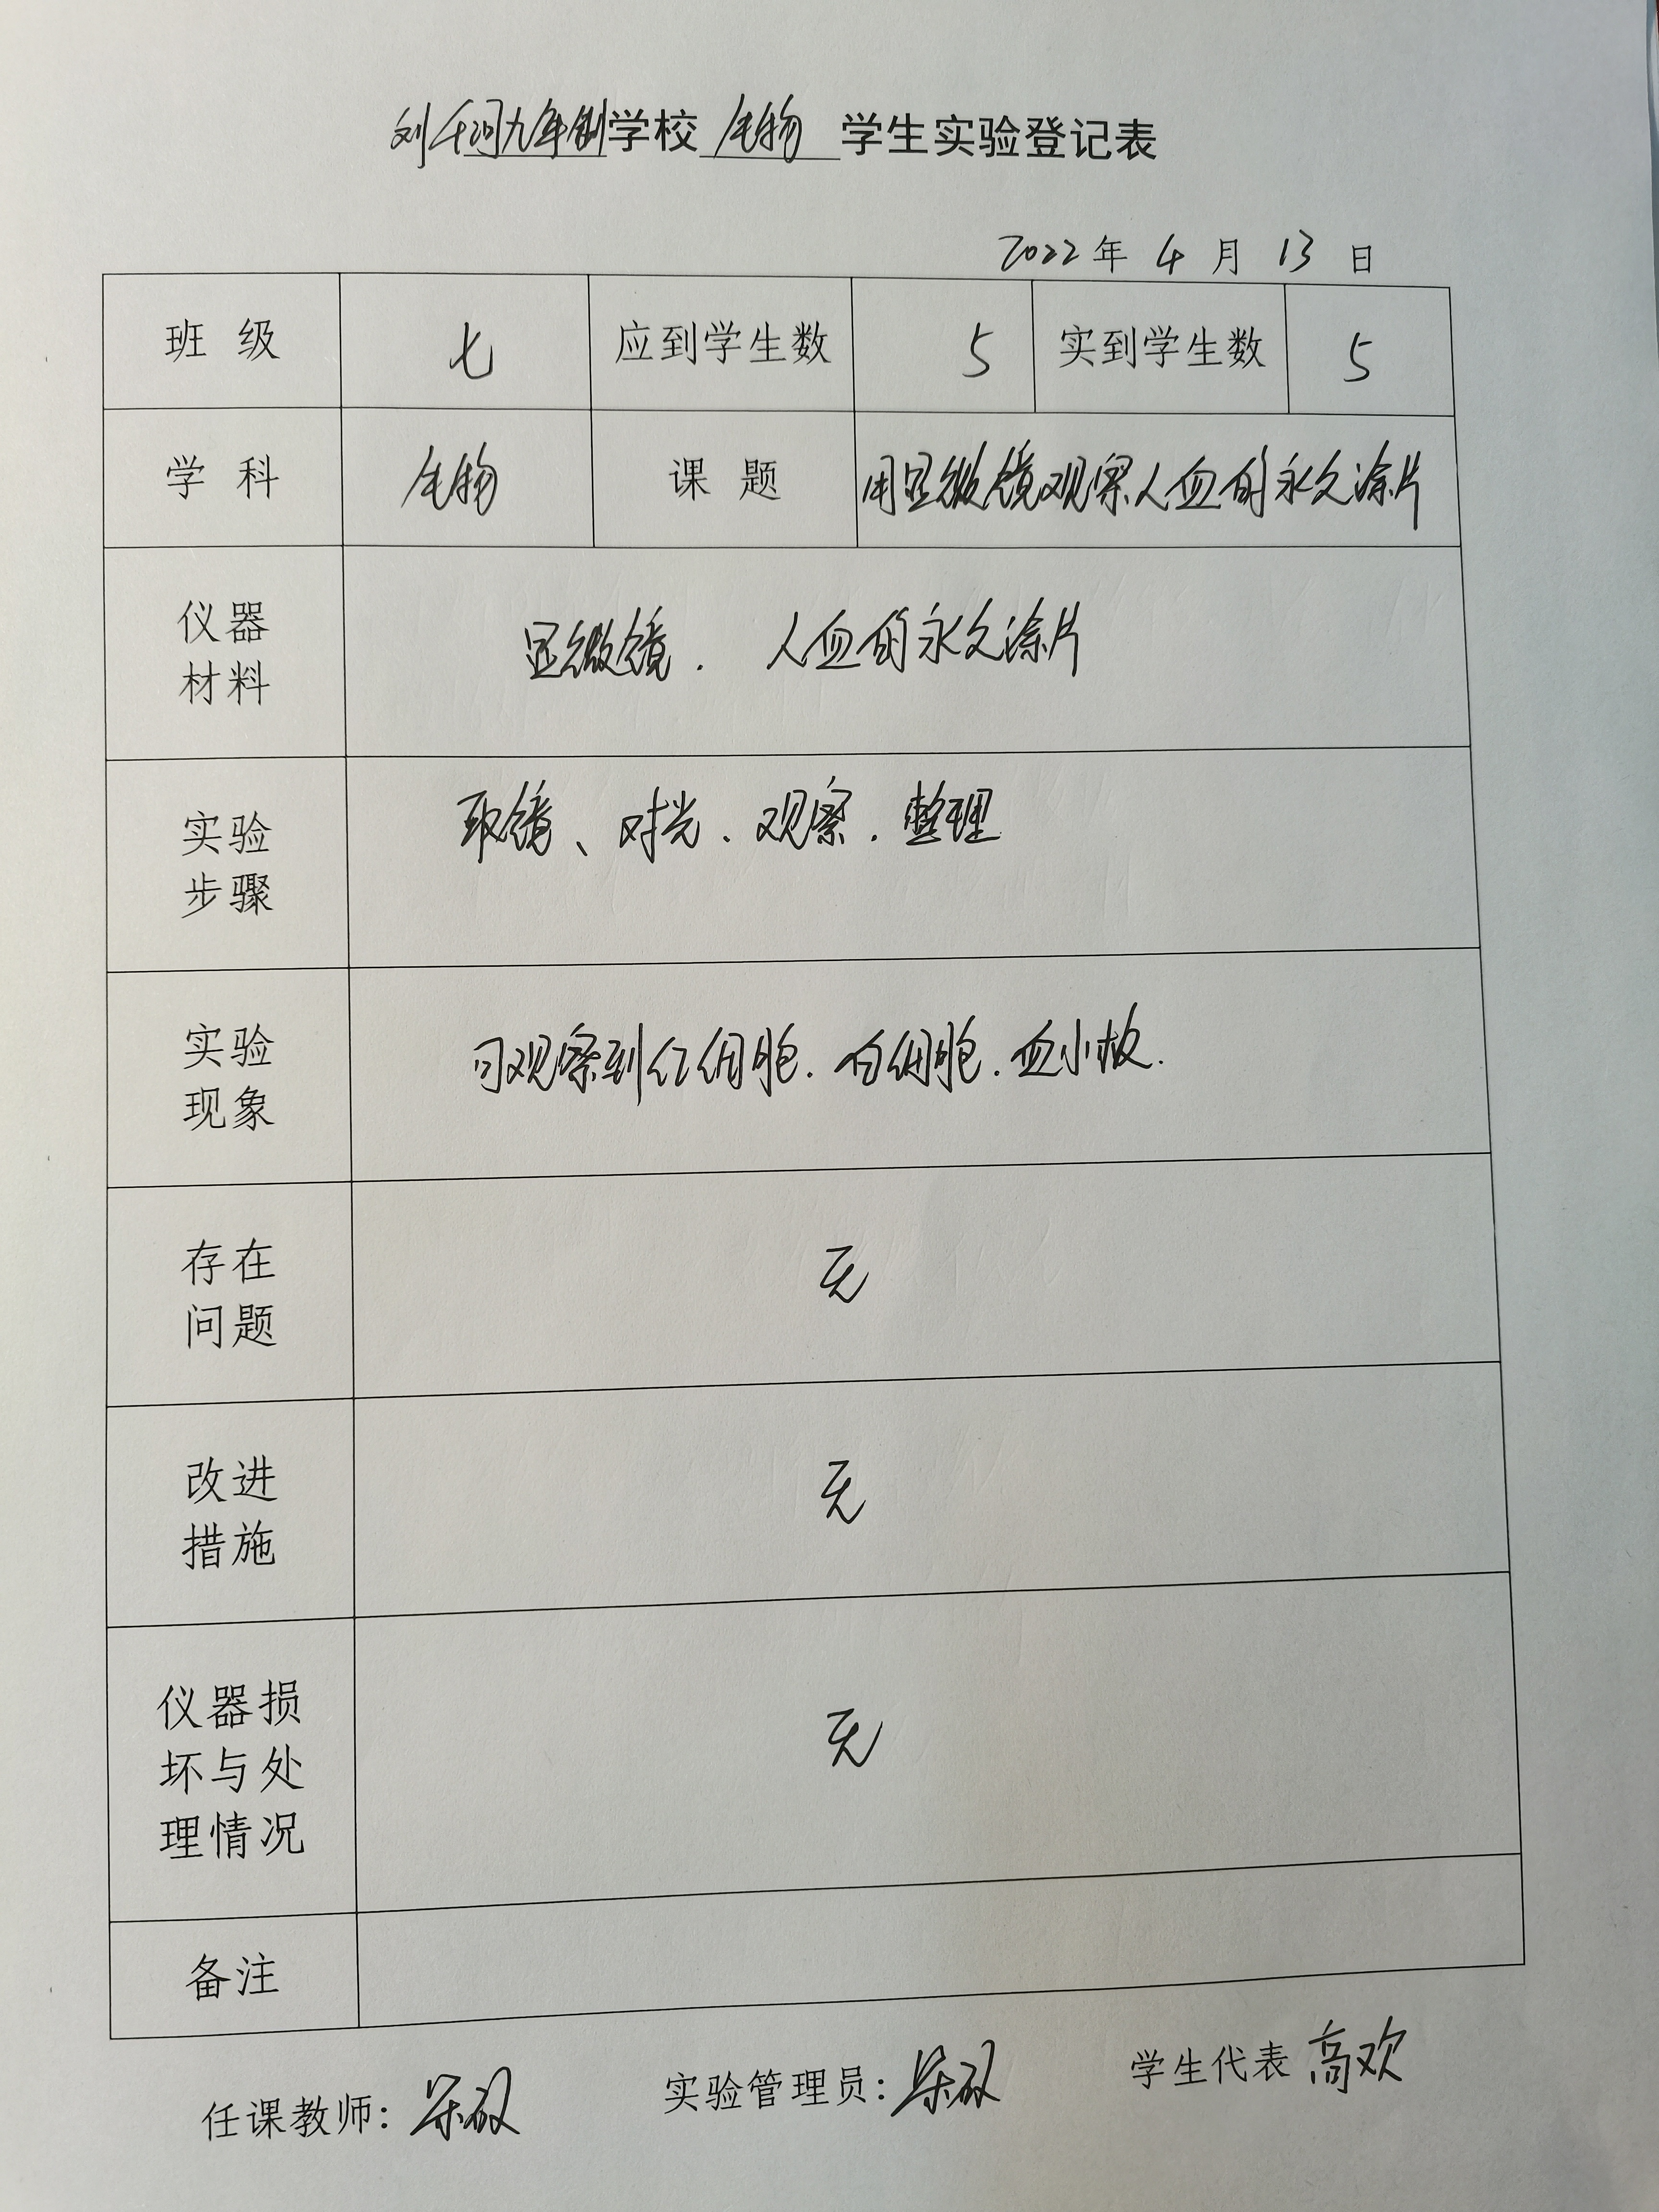 刘千河九年制学校 生物 学生实验登记表
2022年 4月 13日
班级 七 应到学生数 5 实到学生数 5
学科 生物 课题 用显微镜观察人血的永久涂片
仪器
材料
显微镜. 人血的永久涂片
实验
步骤
取镜、对光.观察.整理
实验
现象
可观察到红细胞.白细胞.血小板.
存在
问题
无
改进
措施
无
仪器损
坏与处
理情况
无
备注
任课教师: 实验管理员: 学生代表 高欢